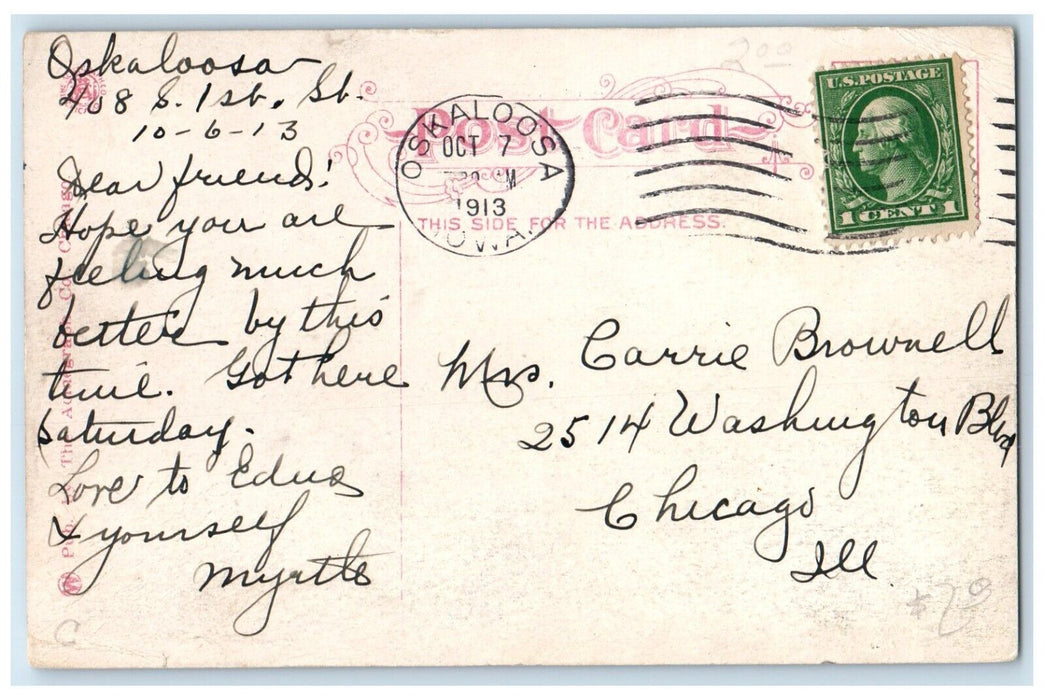 Oskaloosa
408 S. 1st. St.
10-6-13
Dear friend!
Hope you are
feeling much
better by this
time. Got here
Saturday.
Love to Edna
& yourself
Myrtle
Post Card
THIS SIDE FOR THE ADDRESS.
OSKALOOSA
OCT 7
1913
IOWA.
U.S. POSTAGE
1 CENT 1
Mrs. Carrie Brownell
2514 Washington Blvd
Chicago
Ill.